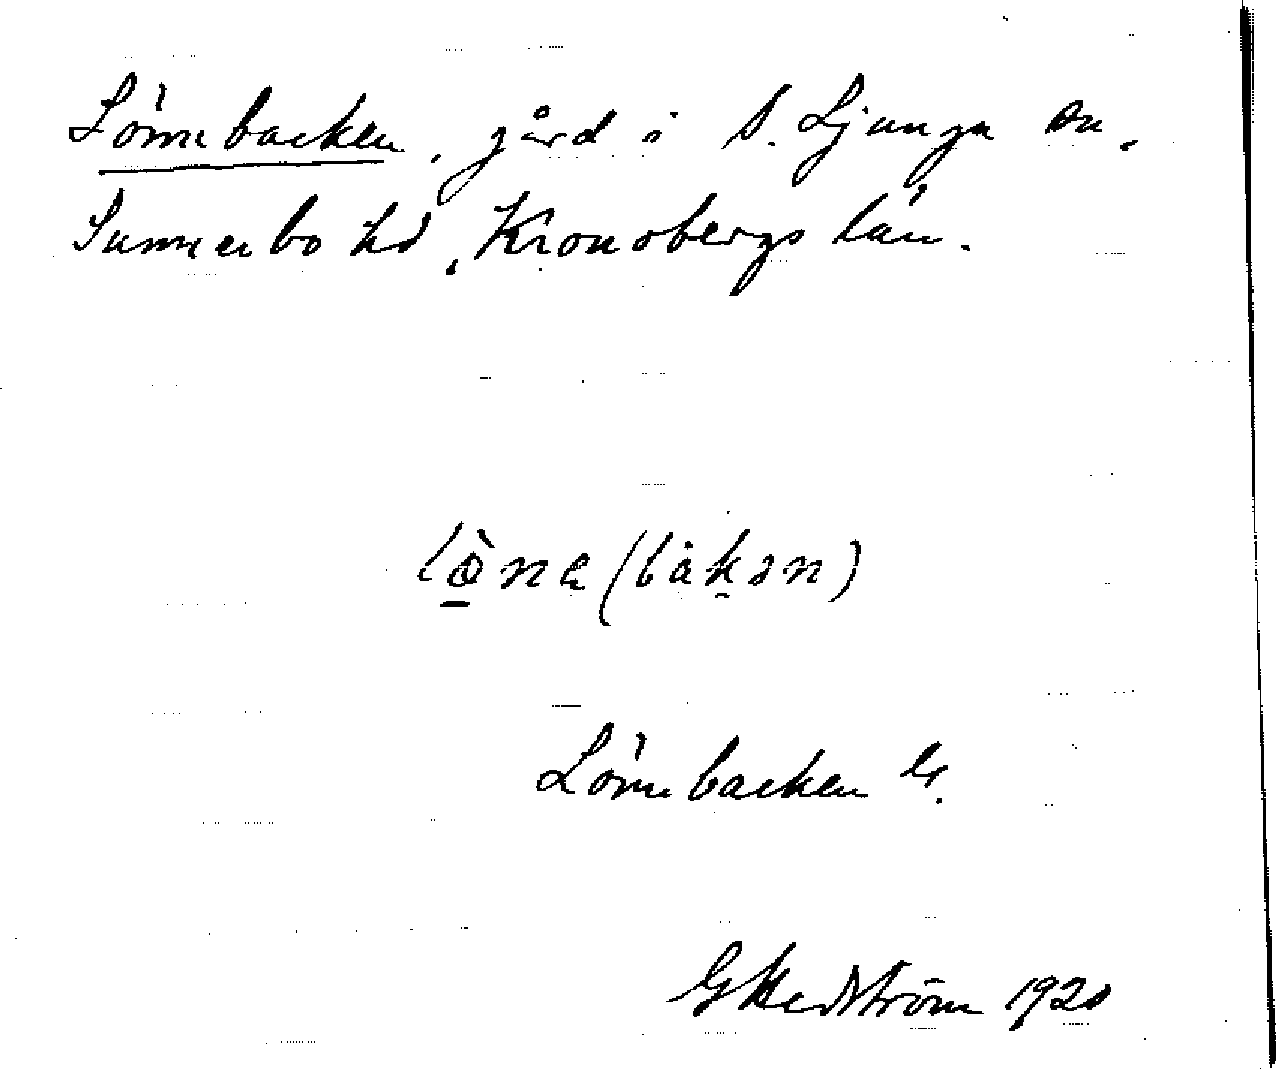 Lönnebacken, gård i S. Ljunga sn.
Sunnerbo hd, Kronobergs län.
lö̀na (båkən)
Lönnebacken
GHedström 1920